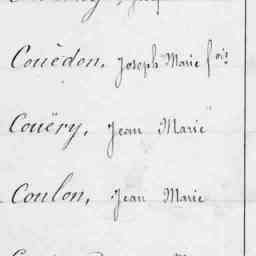 Couëdon, Joseph Marie fois
Couëry, Jean Marie
Coulon, Jean Marie